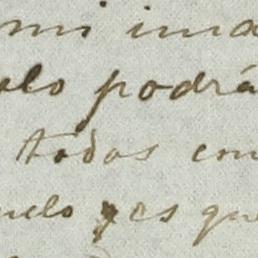 mi ima
olo podrá
todas con
uelo yes que